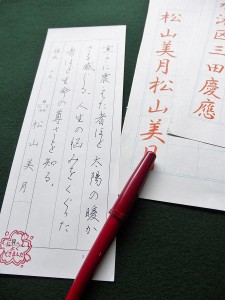 区三田慶應
松山美月松山美月
寒さに震えた者ほど太陽の暖か
さを感じる。人生の悩みをくぐった
者ほど生命の尊さを知る。
松山美月